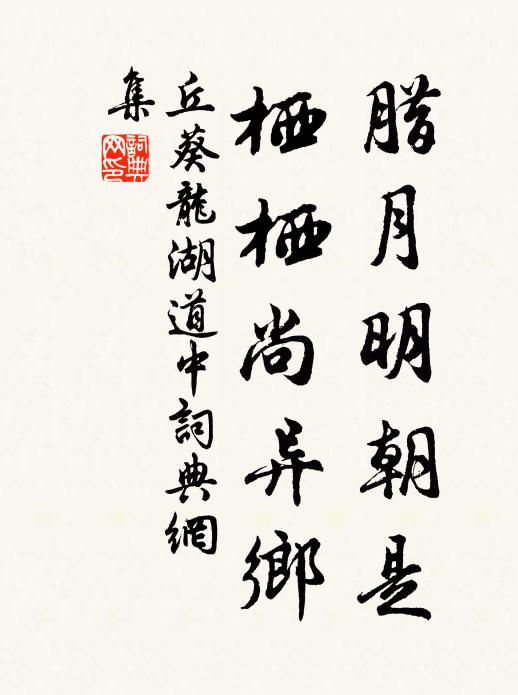 腊月明朝是
栖栖尚异鄉
丘葵龍湖道中詞典網
集
詞典網印